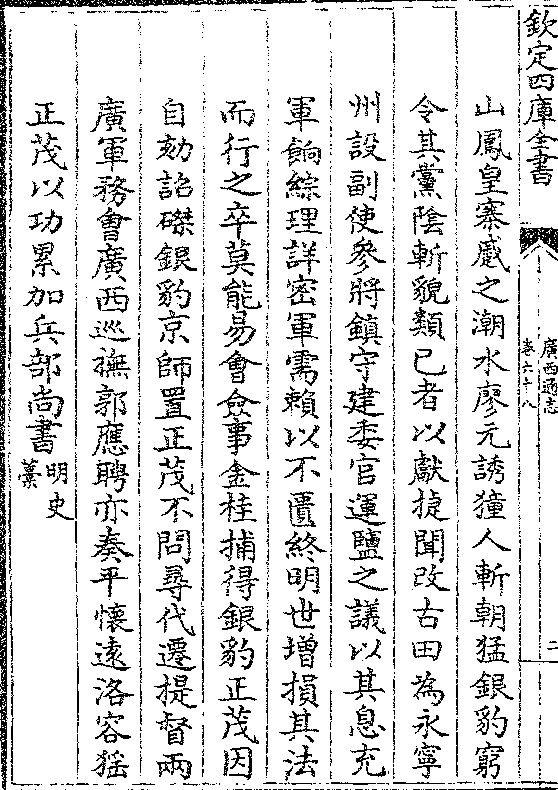 欽定四庫全書
廣西通志
卷六十八
二
山鳳皇寨蹙之潮水廖元誘獞人斬朝猛銀豹窮
令其黨陰斬貌類已者以獻捷聞改古田為永寧
州設副使參將鎮守建委官運鹽之議以其息充
軍餉綜理詳密軍需賴以不匱終明世增損其法
而行之卒莫能易會僉事金柱捕得銀豹正茂因
自劾詔磔銀豹京師置正茂不問尋代遷提督兩
廣軍務會廣西巡撫郭應聘亦奏平懷遠洛容猺
正茂以功累加兵部尚書明史
藁